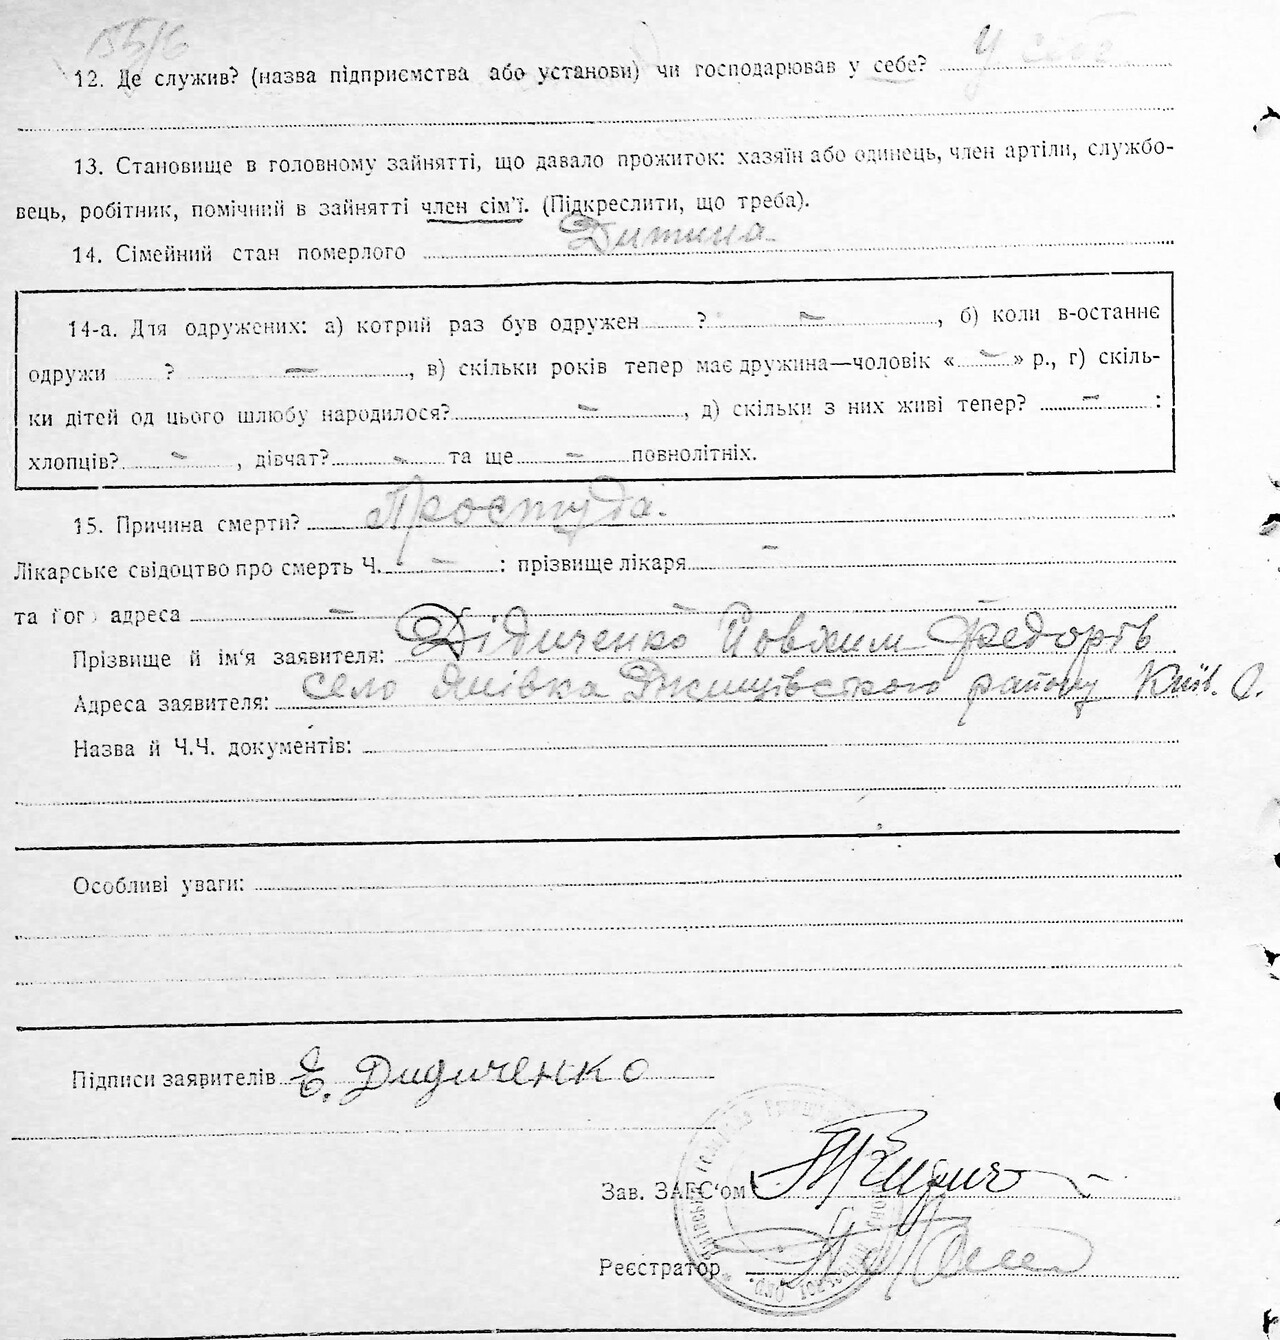 155/6
12. Де служив? (назва підприємства або установи) чи господарював у себе? У себе
13. Становище в головному зайнятті, що давало прожиток: хазяїн або одинець, член артіли, службо-
вець, робітник, помічний в зайнятті член сім'ї. (Підкреслити, що треба).
14. Сімейний стан померлого Дитина
14-а. Для одружених: а) котрий раз був одружен ? –, б) коли в-останнє
одружи ? –, в) скільки років тепер має дружина—чоловік «–» р., г) скіль-
ки дітей од цього шлюбу народилося? –, д) скільки з них живі тепер? – :
хлопців? –, дівчат? – та ще – повнолітніх.
15. Причина смерти? Простуда.
Лікарське свідоцтво про смерть Ч. – : прізвище лікаря –
та його адреса –
Прізвище й ім'я заявителя: Дідиченко Йовхим Федорів
Адреса заявителя: село Янівка Ржищівського району Київ. О.
Назва й Ч.Ч. документів:
Особливі уваги:
Підписи заявителів Є. Дидиченко
Зав. ЗАГС'ом
Реєстратор